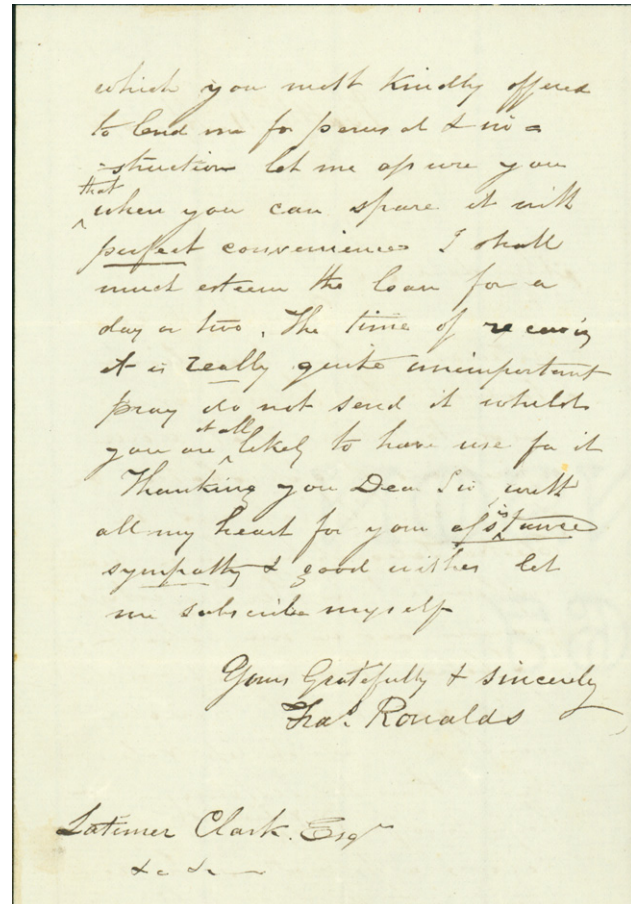 which you most kindly offered
to lend me for perusal & in=
=struction let me assure you
that
when you can spare it with
perfect convenience I shall
much esteem the loan for a
day or two. The time of
it is really quite unimportant
pray do not send it whilst
at all
you are likely to have use for it
Thanking you Dear Sir with
all my heart for your assistance
sympathy & good wishes let
me subscribe myself
Yours Gratefully & sincerely
Fra.s Ronalds
Latimer Clark. Esqr
&c &c